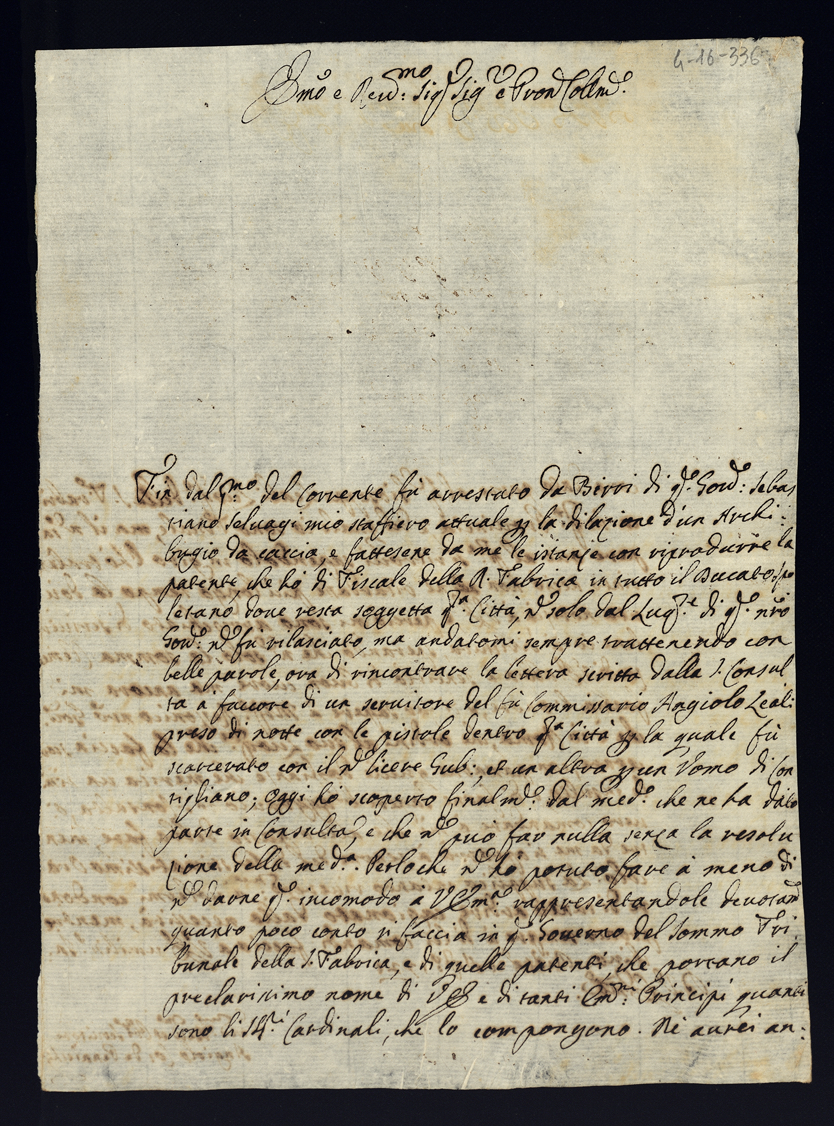 4-16-336
Em̃o e Reud:mo Sigr Sigr e Pron Collmo.
Fin dal pmo del Corrente fù arrestato da Birri di qto Goudo: Sebas
tiano Seluagi mio staffiero attuale p la dilazione d'un Archi:
bugio da caccia, e fattesene da me le istanze con riprodurre la
patente, che hò di Fiscale della R. Fabrica in tutto il Ducato Spo
letano doue resta soggetta qta Città, no solo dal Lugte di qto nr̃o
Goudo: no fù rilasciato, ma andatomi sempre trattenendo con
belle parole, ora di rincontrare la lettera scritta dalla S. Consul
ta à fauore di un seruitore del fù Commissario Angiolo Leali
preso di notte con le pistole dentro qta Città p la quale fù
scarcerato con il no licere sub; et un altra p un Uomo di Con
tigliano; oggi hò scoperto finalmte dal medo che ne ha dato
parte in Consulta, e che no può far nulla senza la resolu
zione della meda. Perloche no hò potuto fare à meno di
no darne qto incomodo à VEm̃a rappresentandole deuotamte
quanto poco conto si faccia in qto Gouerno del Sommo Tri
bunale della S. Fabrica, e di quelle patenti, che portano il
preclarissimo nome di VE e di tanti Em̃i Principi quanti
sono li SSri Cardinali, che lo compongono. Nè aurei an: